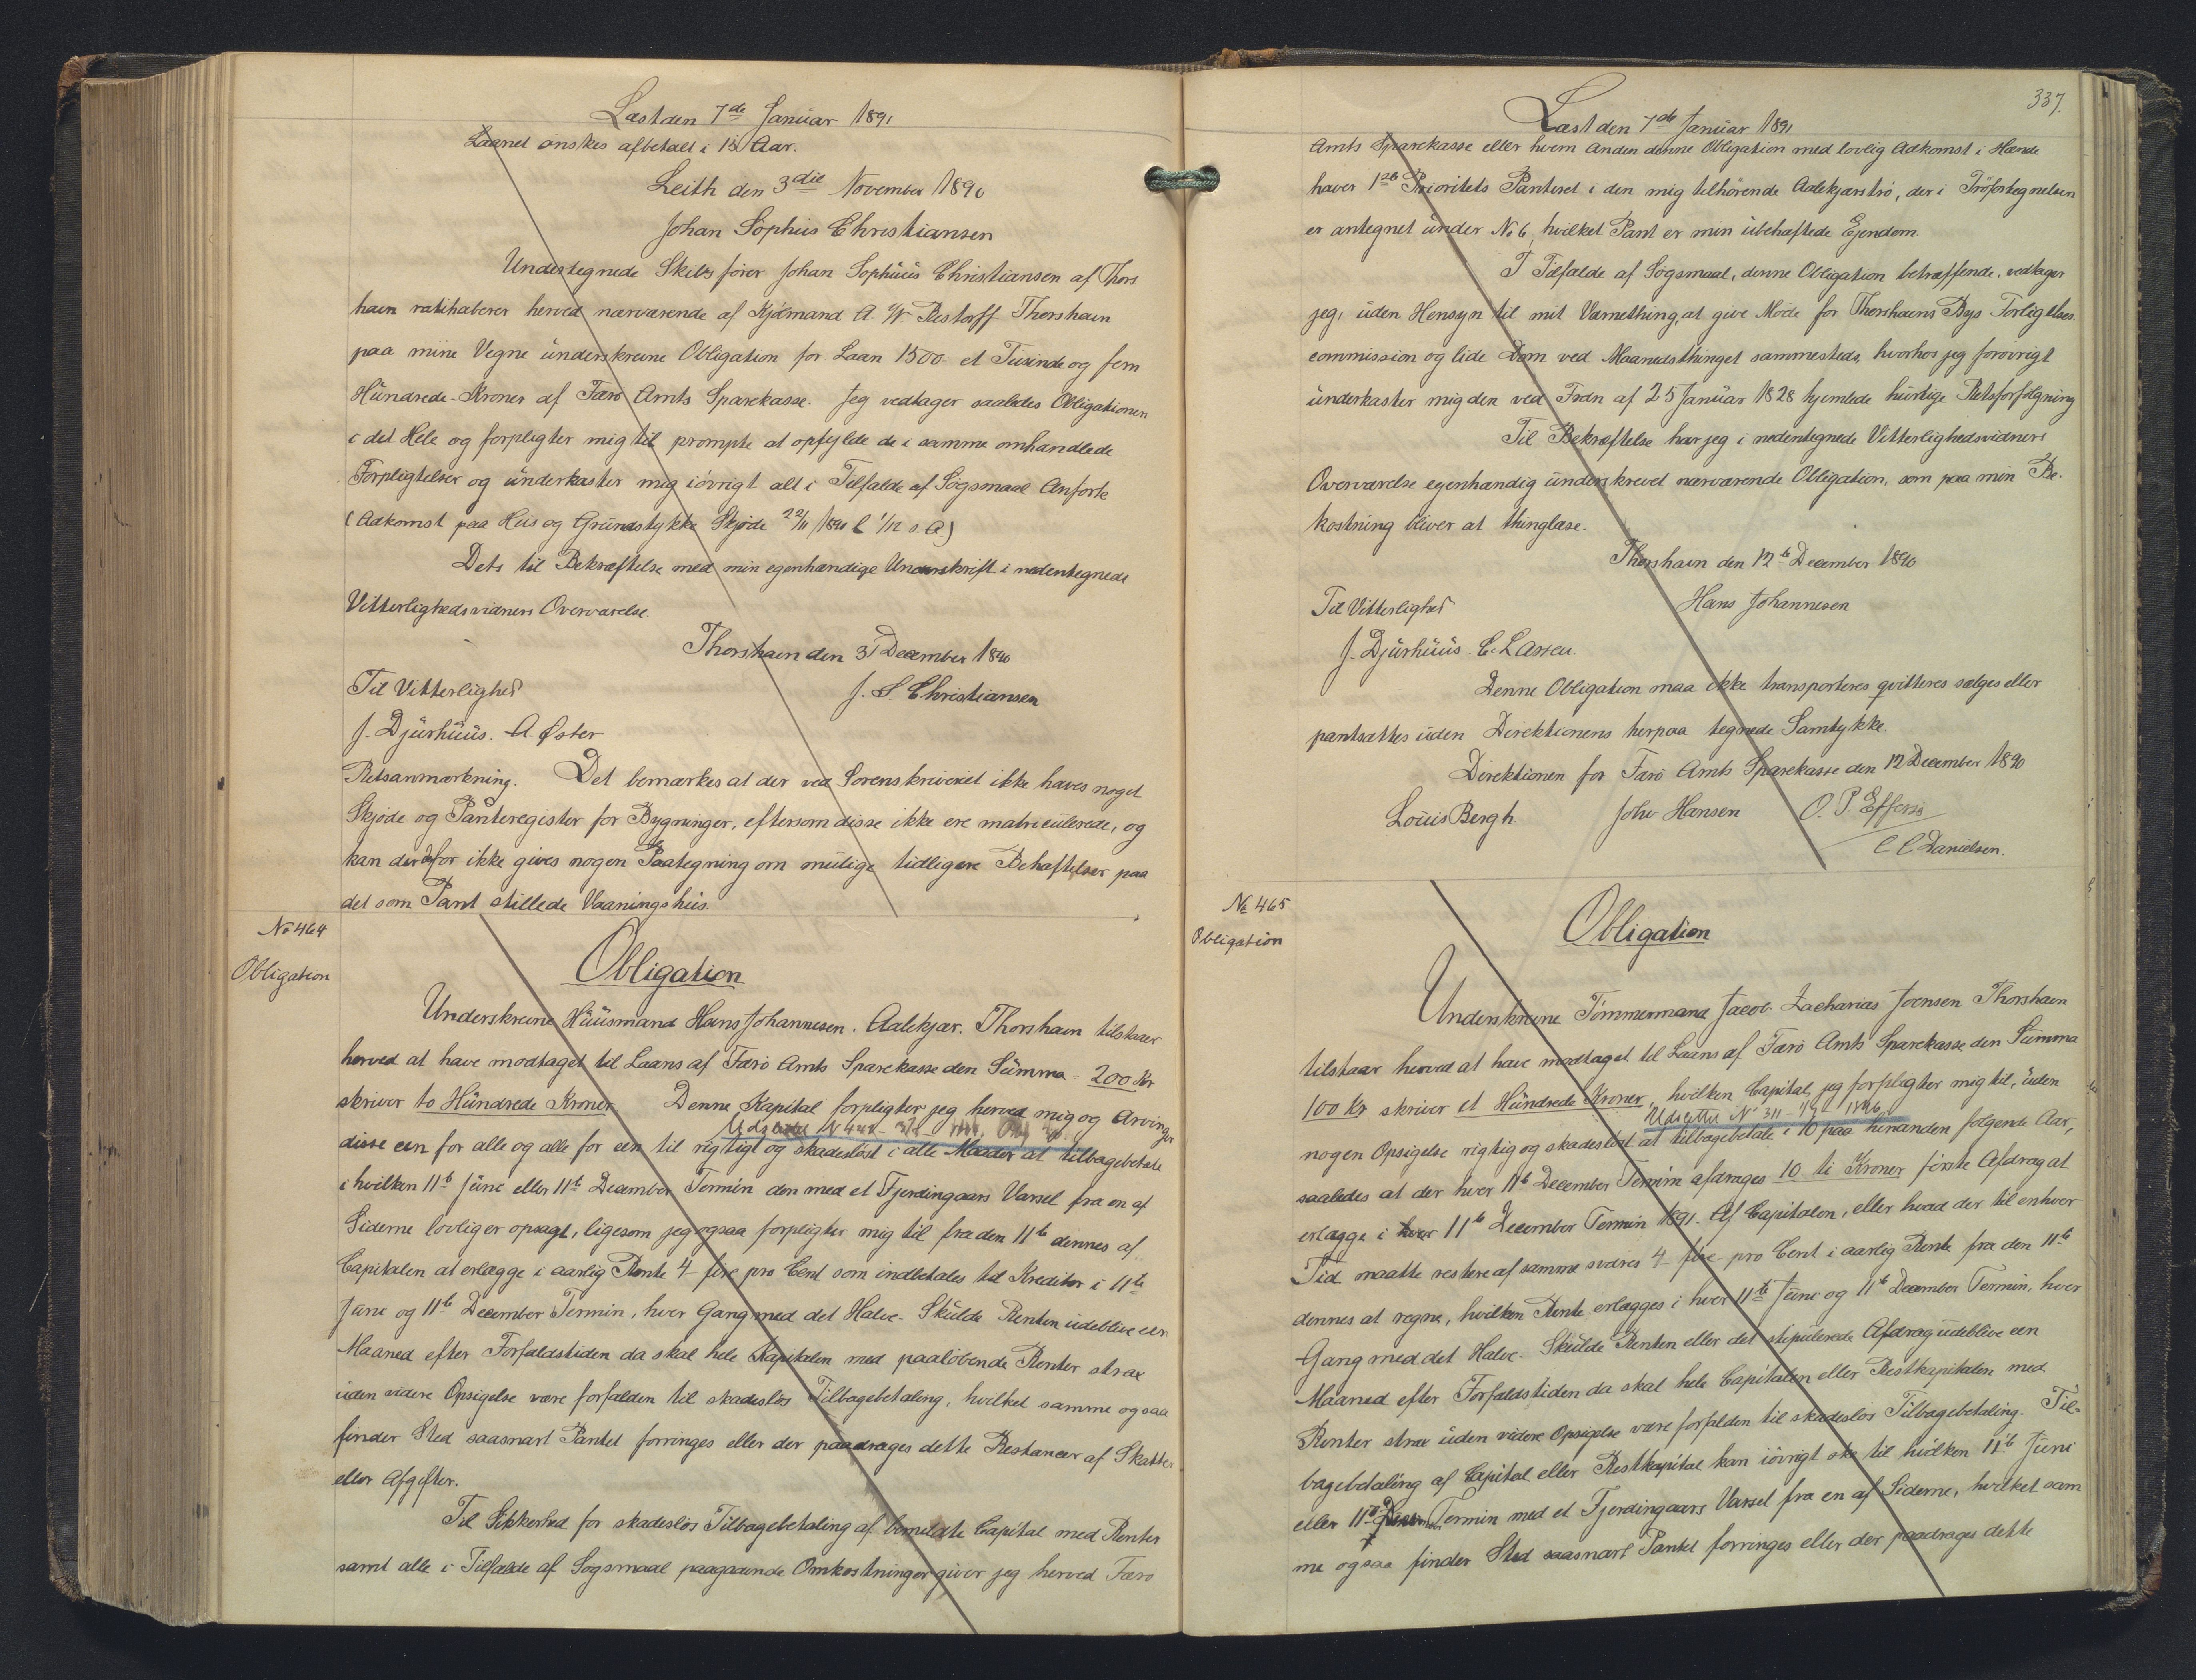 Læst den 7de Januar 1891
Laanet ønskes afbetalt i 15 Aar.
Leith den 3die November 1890
Johan Sophus Christiansen
Undertegnede Skibsfører Johan Sophus Christiansen af Thors
havn ratihaberer herved nærværende af Kjøbmand A. W. Restorff Thorshavn
paa mine Vegne underskrevne Obligation for Laan 1500 et Tusinde og fem
Hundrede Kroner af Færø Amts Sparekasse. Jeg vedtager saaledes Obligationen
i det Hele og forpligter mig til prompte at opfylde de i samme omhandlede
Forpligtelser og underkaster mig iøvrigt alt i Tilfælde af Søgsmaal Anførte
(Adkomst paa Huus og Grundstykke Skjøde 22/11 1890 l 1/12 s. A.)
Dets til Bekræftelse med min egenhændige Underskrift i nedentegnede
Vitterlighedsvidners Overværelse.
Thorshavn den 31 December 1890
Til Vitterlighed
J. S. Christiansen
J. Djurhuus. A. Øster
Retsanmærkning. Det bemærkes at der ved Sorenskriveriet ikke haves noget
Skjøde og Panteregister for Bygninger, eftersom disse ikke ere matriculerede, og
kan der derfor ikke gives nogen Paategning om mulige tidligere Behæftelser paa
det som Pant stillede Vaaningshus.
No 464
Obligation
Obligation
Underskrevne Huusmand Hans Johannesen. Aalekjær. Thorshavn tilstaaer
herved at have modtaget til Laans af Færø Amts Sparekasse den Summa - 200 Kr
skriver to Hundrede Kroner Denne Kapital forpligter jeg herved mig og Arvinger
Udslettet
disse een for alle og alle for een til rigtigt og skadesløst i alle Maader at tilbagebetale
i hvilken 11te Juni eller 11te December Termin den med et Fjerdingaars Varsel fra en af
Siderne lovlig er opsagt, ligesom jeg ogsaa forpligter mig til fra den 11te dennes af
Capitalen at erlægge i aarlig Rente 4 fire pro Cent som indbetales til Kreditor i 11te
Juni og 11te December Termin, hver Gang med det Halve. Skulde Renten udeblive een
Maaned efter Forfaldstiden da skal hele Kapitalen med paaløbende Renter strax
uden videre Opsigelse være forfalden til skadesløs Tilbagebetaling, hvilket samme ogsaa
finder Sted saasnart Pantet forringes eller der paadrages dette Restancer af Skatter
eller Afgifter.
Til Sikkerhed for skadesløs Tilbagebetaling af bemeldte Capital med Renter
samt alle i Tilfælde af Søgsmaal paagaaende Omkostninger giver jeg herved Færø
337.
Læst den 7de Januar 1891
Amts Sparekasse eller hvem Anden denne Obligation med lovlig Adkomst i Hænde
haver 1ste Prioritets Panteret i den mig tilhørende Aalekjærstrø, der i Trøfortegnelsen
er antegnet under No 6, hvilket Pant er min ubehæftede Ejendom.
I Tilfælde af Søgsmaal, denne Obligation betræffende, vedtager
jeg, uden Hensyn til mit Værnething, at give Møde for Thorshavns Bys Forligelses
commission og lide Dom ved Maanedsthinget sammesteds, hvorhos jeg forøvrigt
underkaster mig den ved Frdn af 25 Januar 1828 hjemlede hurtige Retsforfølgning
Til Bekræftelse har jeg i nedentegnede Vitterlighedsvidners
Overværelse egenhændig underskrevet nærværende Obligation, som paa min Be-
kostning bliver at thinglæse.
Thorshavn den 12te December 1890
Til Vitterlighed
Hans Johannesen
J. Djurhuus. C. Lassen.
Denne Obligation maa ikke transporteres qvitteres sælges eller
pantsættes uden Direktionens herpaa tegnede Samtykke.
Direktionen for Færø Amts Sparekasse den 12 December 1890
Louis Bergh. Johs Hansen O. P. Effersø
C C Danielsen.
No 465
Obligation
Obligation
Underskrevne Tømmermand Jacob Zacharias Joensen Thorshavn
tilstaar herved at have modtaget til Laans af Færø Amts Sparekasse den Summa
100 Kr skriver et Hundrede Kroner, hvilken Capital jeg forpligter mig til, uden
Udslettet No 311
nogen Opsigelse rigtig og skadesløst at tilbagebetale i 10 paa hinanden følgende Aar,
saaledes at der hver 11te December Termin afdrages 10 ti Kroner første Afdrag at
erlægge i 11te December Termin 1891. Af Capitalen, eller hvad der til enhver
Tid maatte restere af samme svares 4 fire pro Cent i aarlig Rente fra den 11te
dennes at regne, hvilken Rente erlægges i hver 11te Juni og 11te December Termin, hver
Gang med det Halve. Skulde Renten eller det stipulerede Afdrag udeblive een
Maaned efter Forfaldstiden da skal hele Capitalen eller Restkapitalen med
Renter strax uden videre Opsigelse være forfalden til skadesløs Tilbagebetaling. Til-
bagebetaling af Capital eller Restkapital kan iøvrigt ske til hvilken 11te Juni
eller 11te December Termin med et Fjerdingaars Varsel fra en af Siderne, hvilket sam
me ogsaa finder Sted saasnart Pantet forringes eller der paadrages dette